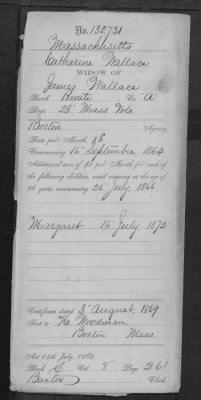 No. 132731
Massachusetts
Catharine Wallace
WIDOW OF
James Wallace
Rank Private Co. A
Regt. 28 Mass Vols
Boston Agency
Rate per Month $8
Commencing 16 September 1864
Additional sum of $2 per Month for each of
the following children, until arriving at the age of
16 years, commencing 25 July, 1866
Margaret 16 July, 1872
Certificate dated 3 August, 1869
Sent to Woodman,
Boston Mass.
Act 14th July, 1862.
Book C Vol. 8 Page 261
Baxter Clerk.